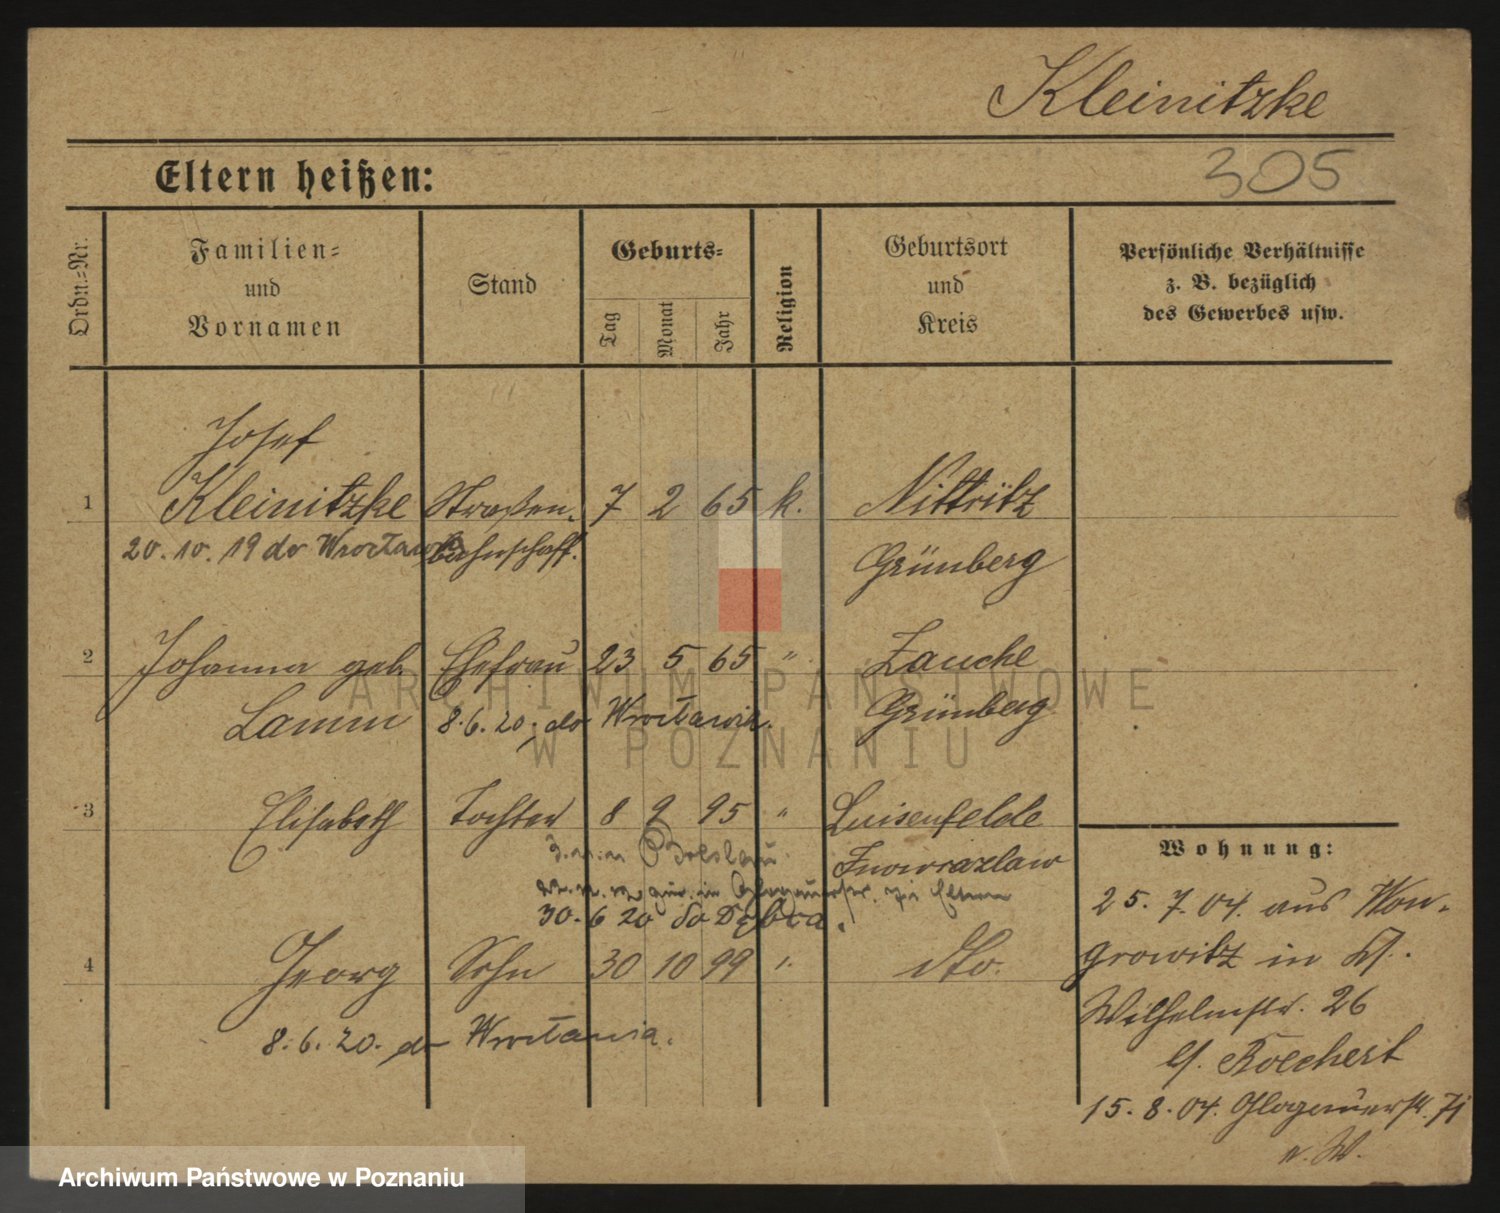 Kleinitzke
Eltern heißen:
305
Ordn.=Nr.
Familien=
und
Vornamen
Stand
Geburts=
Tag
Monat
Jahr
Religion
Geburtsort
und
Kreis
Persönliche Verhältnisse
z. B. bezüglich
des Gewerbes usw.
Josef
1 Kleinitzke Straßen- 7 2 65 k. Nittritz
20. 10. 19 do Wrocławia bahnschaff. Grünberg
2 Johanna geb. Ehefrau 23 5 65 " Zauche
Lamm 8. 6. 20. do Wrocławia. Grünberg
3 Elisabeth Tochter 8 9 95 " Luisenfelde
Breslau Inowrazlaw
zur. in Glogauerstr. zu Eltern
30. 6 20 do Dębca.
4 Georg Sohn 30 10 99 " dto.
8. 6. 20. do Wrocławia.
Wohnung:
25. 7. 04. aus Won-
growitz in
Wilhelmstr. 26
b/. Bolchert
15. 8. 04. Glogauerstr.
ARCHIWUM PAŃSTWOWE
W POZNANIU
Archiwum Państwowe w Poznaniu